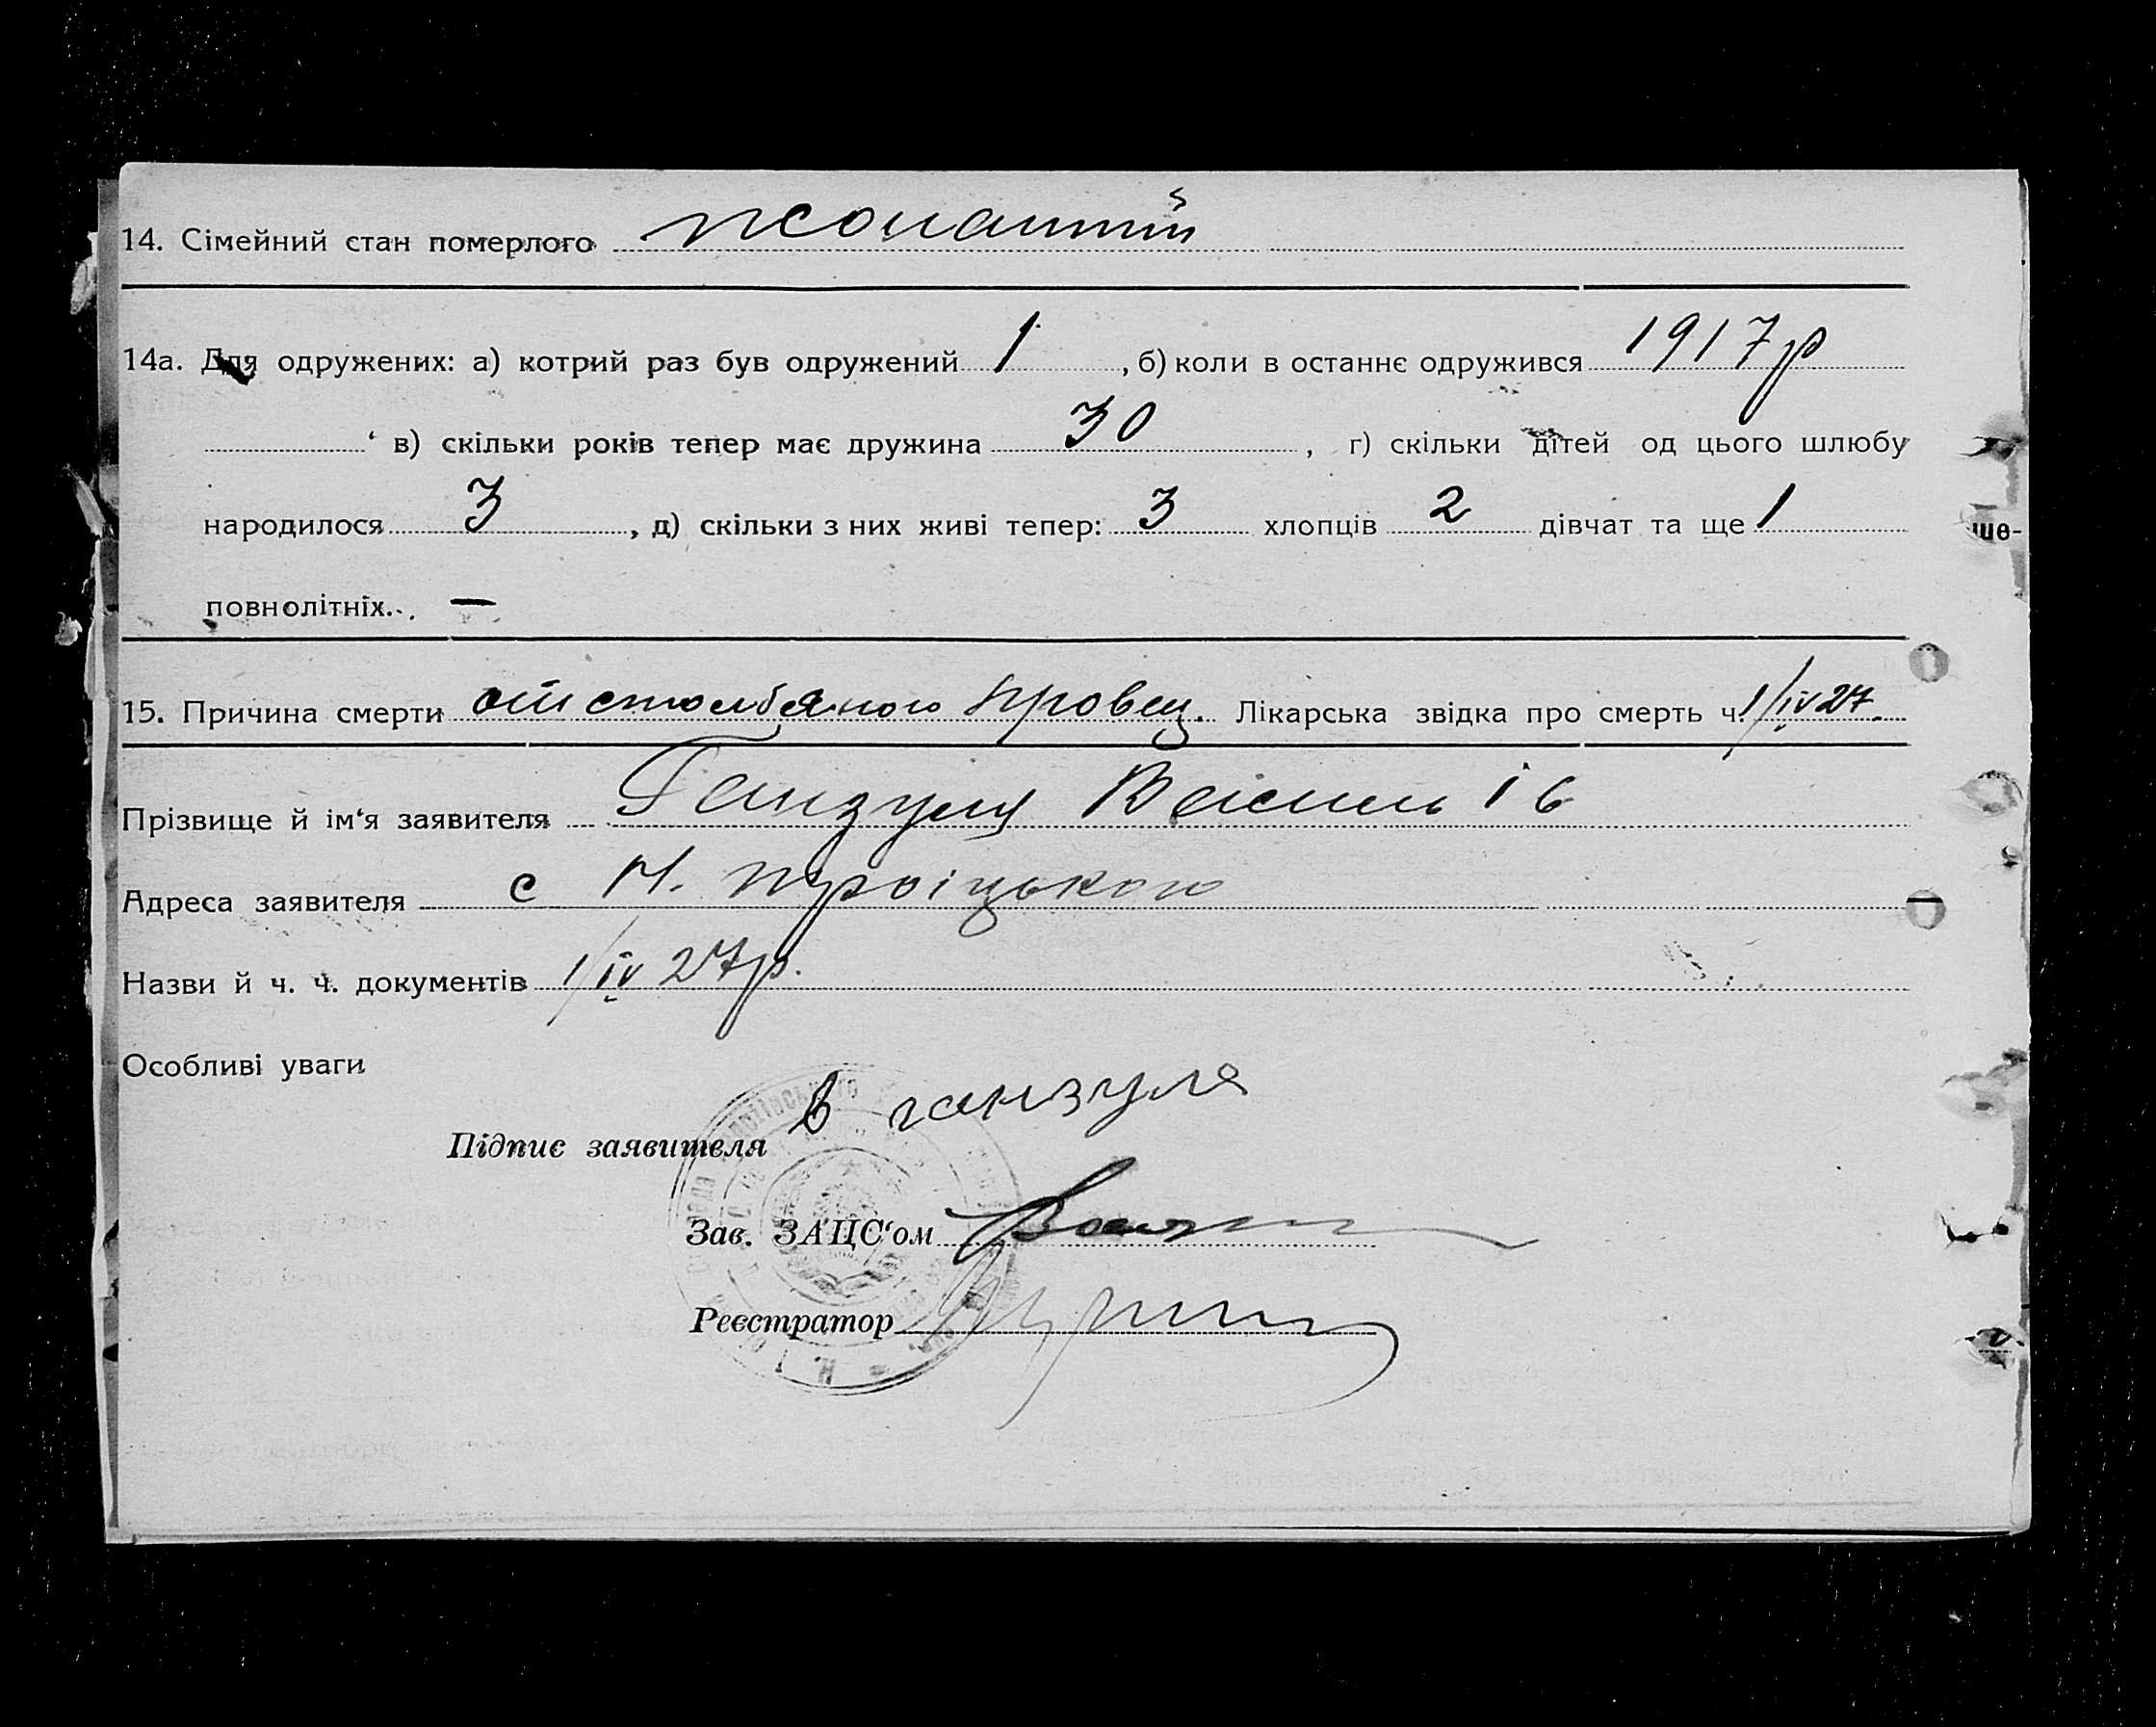 14. Сімейний стан померлого жонатий
14а. Для одружених: а) котрий раз був одружений 1 , б) коли в останнє одружився 1917р
в) скільки років тепер має дружина 30 , г) скільки дітей од цього шлюбу
народилося 3 , д) скільки з них живі тепер: 3 хлопців 2 дівчат та ще 1
повнолітніх. —
15. Причина смерти от Лікарська звідка про смерть ч. 1/IV 27.
Прізвище й ім‘я заявителя Ганзуля
Адреса заявителя с Н. Троіцького
Назви й ч. ч. документів 1/IV 27р.
Особливі уваги
Підпис заявителя В ганзуля
Зав. ЗАЦС‘ом
Реєстратор